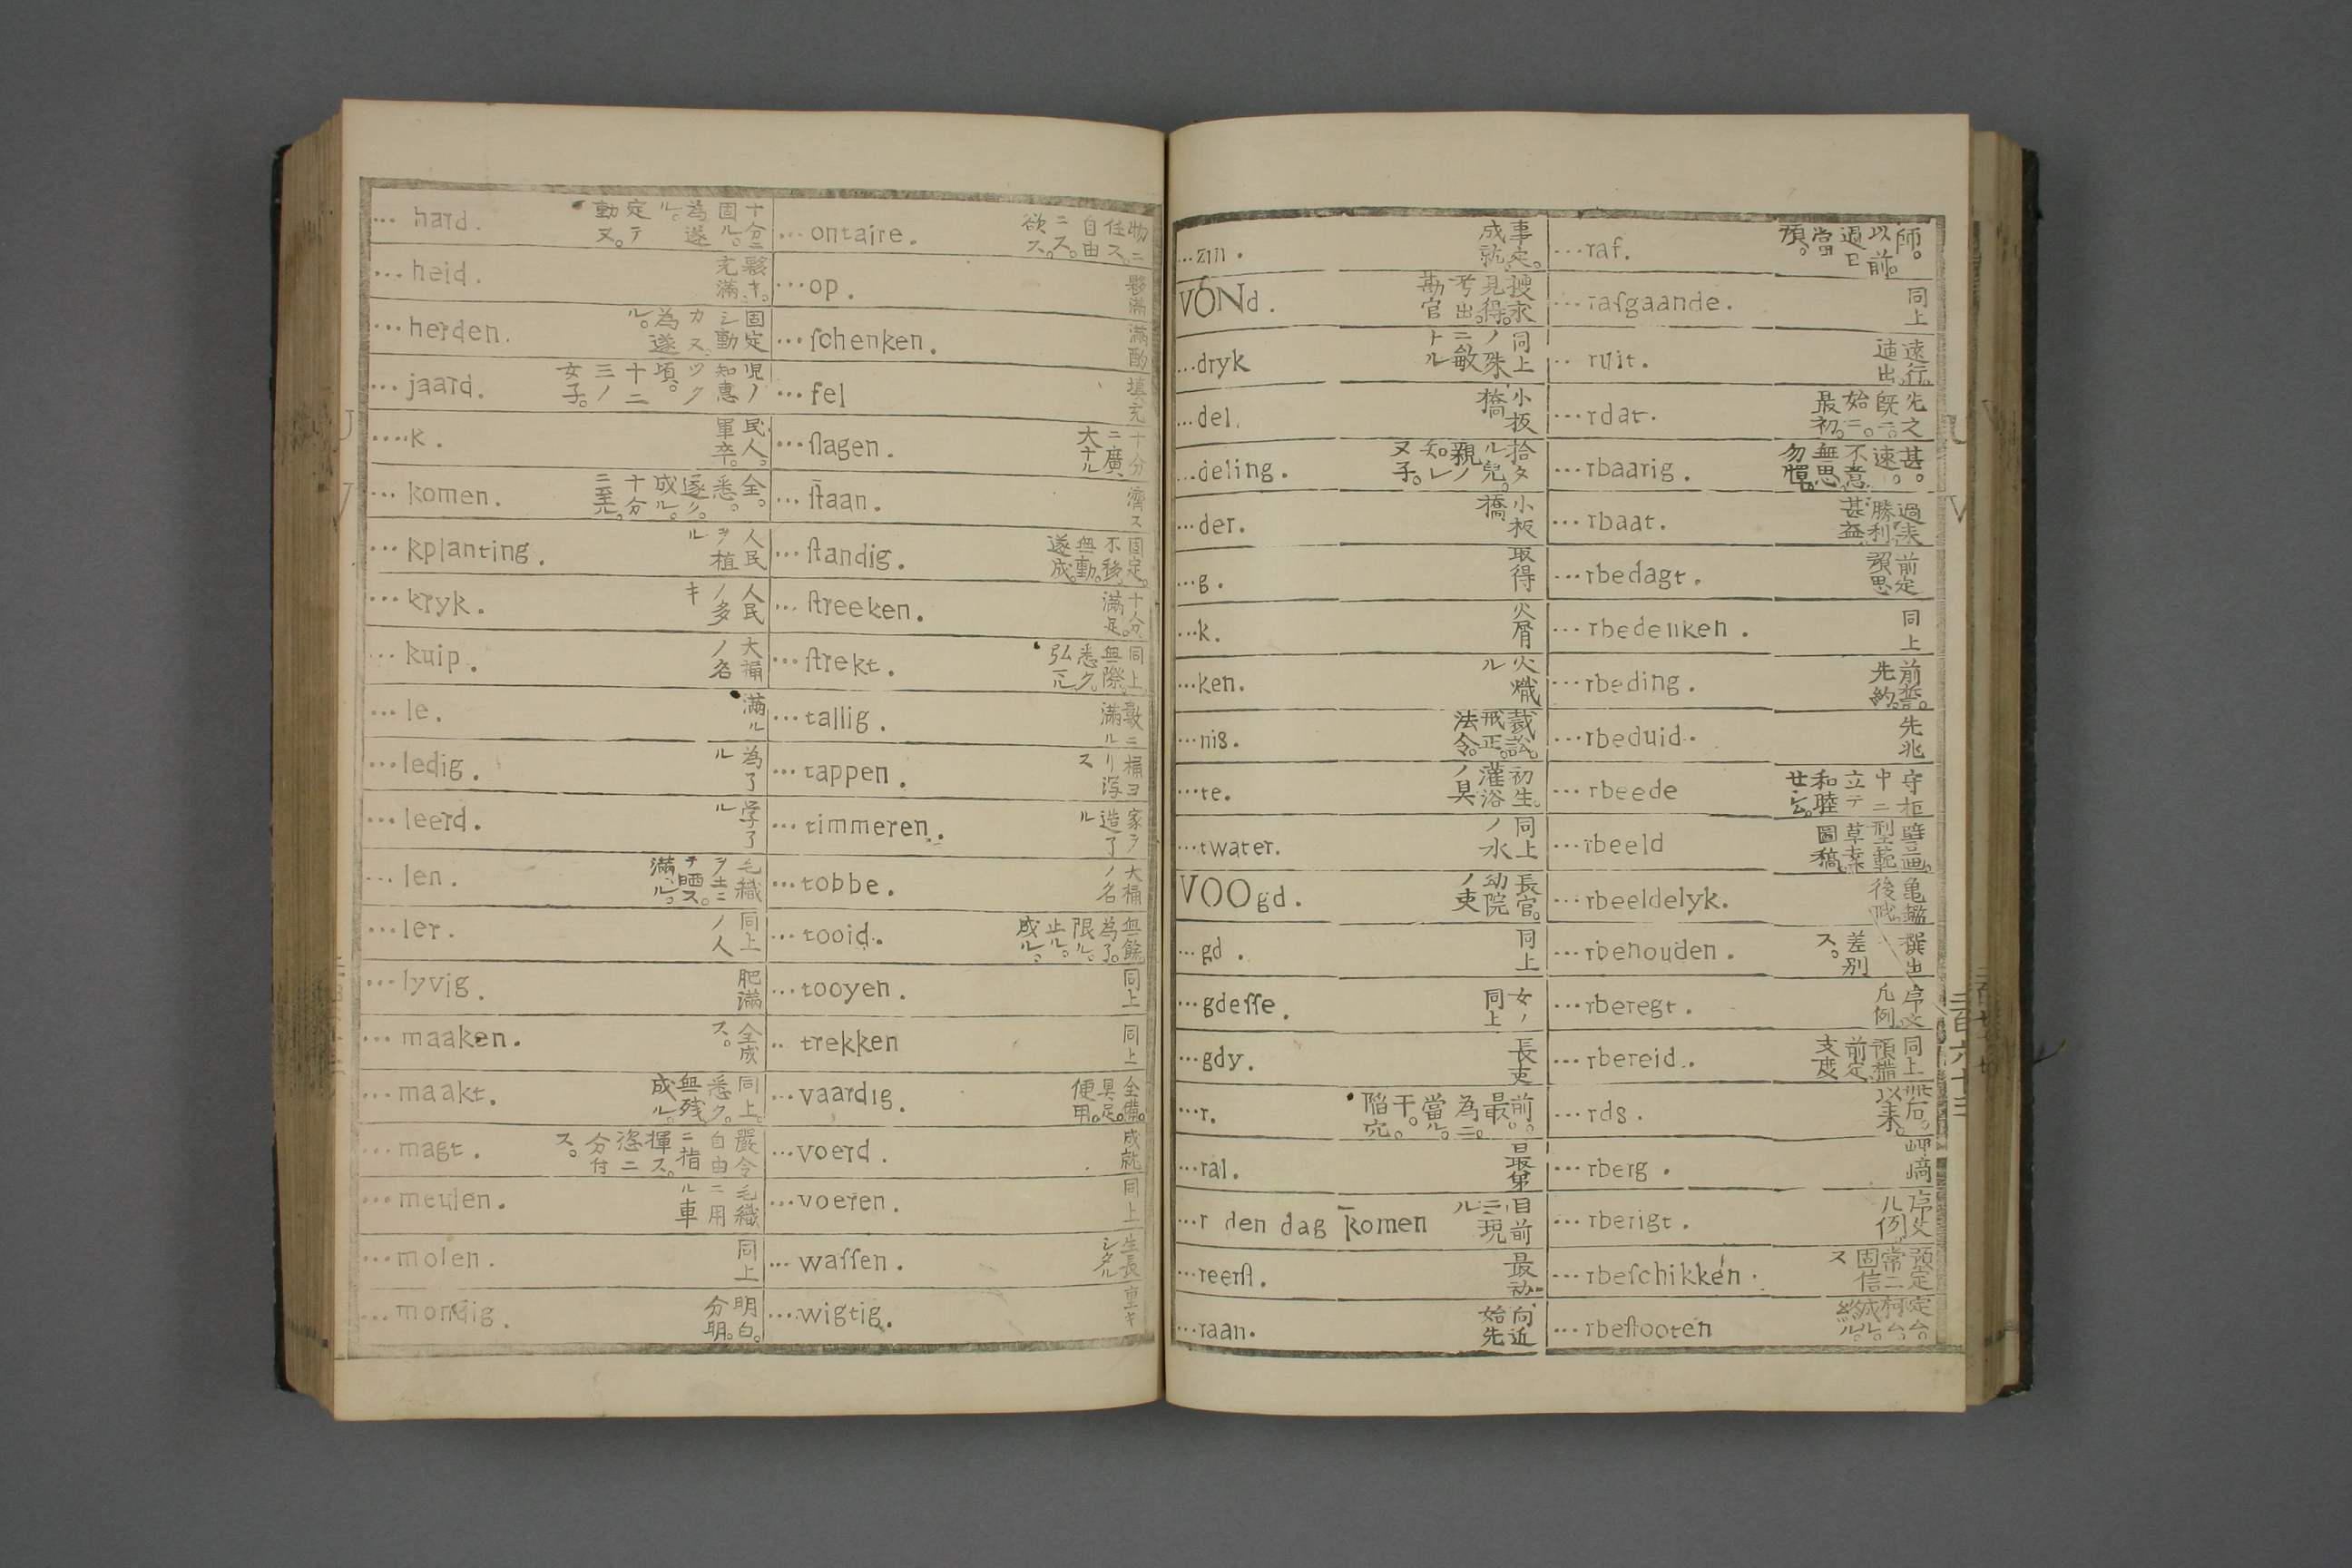 ... hard. 十分ニ固ル。為遂ル。定テ動ヌ。
... heid. 夥キ。充滿
... herden. 固定シ動カヌ 為遂ル。
... jaard. 児ノ知恵ツク項。十二三ノ女子。
...k. 民人。軍卒。
... komen. 全。悉。遂ク。成ル。十分ニ至ル。
... kplanting. 人民ヲ植ル
... kryk. 人民ノ多キ
... kuip. 大桶ノ名
... le. 滿ル
... ledig. 為了ル
... leerd. 学了ル
... len. 毛織ヲ土ニテ晒ス。滿ル。
... ler. 同上ノ人
... lyvig. 肥滿
... maaken. 全成ス。
... maakt. 同上。悉ク。無残成ル。
... magt. 嚴令自由ニ指揮ス。恣ニ分付ス。
... meulen. 毛織ニ用ル車
... molen. 同上
... mondig. 明白。分明。
... ontaire. 物ニ任ス。自由ニス。欲ス。
... op. 夥滿
... ſchenken. 滿酌
... fel 填充
... ſlagen. 十分ニ廣大ナル
... ſtaan. 濟ス
... ſtandig. 固定。不移。無動。遂成。
... ſtreeken. 十分滿足。
... ſtrekt. 同上。無際。悉ク。
... tallig. 數ニ滿ル
... tappen. 桶ヨリ瀉ス
... timmeren. 家ヲ造了ル
... tobbe. 大桶ノ名
... tooid. 無餘。為了。限ル。止ル。成ル。
... tooyen. 同上
.. trekken 同上
... vaardig. 全備。具足。使用。
... voerd. 成就
... voeren. 同上
... waſſen. 生長シタル
... wigtig. 重キ
... zin. 事定。成就
VONd. 捜求見得。考出。勘官
...dryk 同上ノ殊ニ敏トル
...del. 小板橋
...deling. 拾タル兒。親ノ知レヌ子。
...der. 小板橋
...g. 取得
...k. 火屑
...ken. 火熾ル
...nis. 裁訟。戒正。法令。
...te. 初生。灌浴ノ具
...twater. 同上ノ水
VOOgd. 長官。幼院ノ吏
...gd. 同上
...gdeſſe. 女ノ同上
...gdy. 長吏
...r. 前。最。為ニ。當ル。干。陥穴。
...ral. 最第
...r den dag komen 目前ニ現ル
...reerſt. 最初
...raan. 向近始先
...raf. 師。以前。過日 當預。
...rafgaande. 同上
.. ruit. 遠行。迪出。
...rdat. 先之既ニ。始ニ。最初。
...rbaarig. 甚。速。不意無思。勿憚。
...rbaat. 過表 勝利。甚益
...rbedagt. 前定預思
...rbedenken. 同上
...rbeding. 前誓。先約。
...rbeduid. 先兆
...rbeede 守柜中ニ立テ和睦
...rbeeld 壁画。型範 草案。圖稿。
...rbeeldelyk. 亀鑑 後戒。
...rbehouden. 撰出 差別ス。
...rberegt. 序文 凡例
...rbereid. 同上 預備 前定 支度
...rds. 以来。
...rberg. 岬﨑
...rberigt. 序文 凡例
...rbeſchikken. 預定 常ニ固信ス
...rbeſtooten
三百六十三